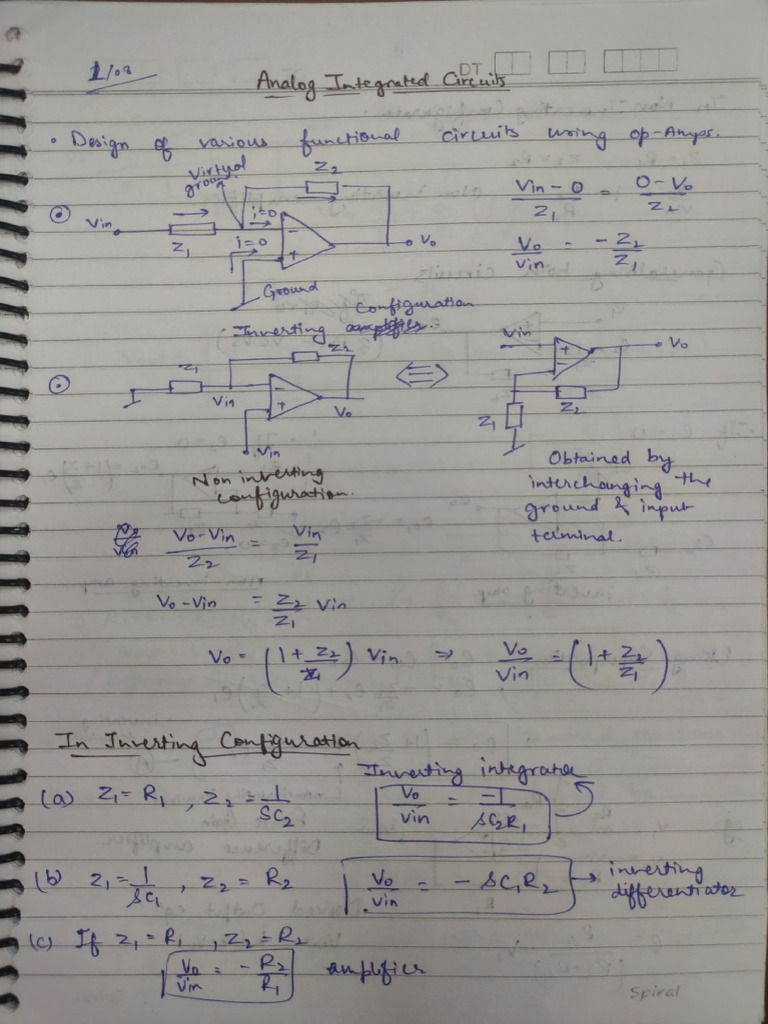 1/08
DT
Analog Integrated Circuits
• Design of various functional circuits using op-Amps.
Virtual ground
Z2
Vin
Z1
i=0
i=0
-
+
Vo
Ground
(Vin - 0)/Z1 = (0 - Vo)/Z2
Vo/Vin = -Z2/Z1
• Inverting Configuration
Z1
Z2
Vin
-
+
Vo
Vin
Non inverting
configuration.
⇔
Vin
+
-
Vo
Z1
Z2
Obtained by
interchanging the
ground & input
terminal.
(Vo - Vin)/Z2 = Vin/Z1
Vo - Vin = Z2/Z1 Vin
Vo = (1 + Z2/Z1) Vin ⇒ Vo/Vin = (1 + Z2/Z1)
In Inverting Configuration
Inverting integrator
(a) Z1 = R1 , Z2 = 1/SC2
Vo/Vin = -1/SC2R1
(b) Z1 = 1/SC1 , Z2 = R2
Vo/Vin = - SC1R2 → inverting
differentiator
(c) If Z1 = R1 , Z2 = R2
Vo/Vin = - R2/R1 amplifier
Spiral